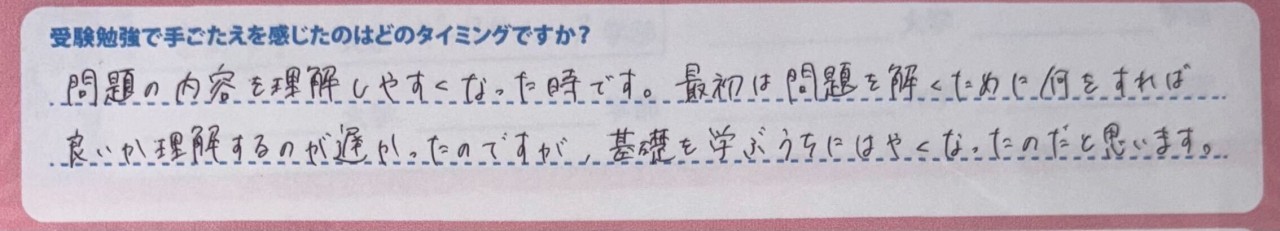 受験勉強で手ごたえを感じたのはどのタイミングですか?
問題の内容を理解しやすくなった時です。最初は問題を解くために何をすれば
良いか理解するのが遅かったのですが、基礎を学ぶうちにはやくなったのだと思います。